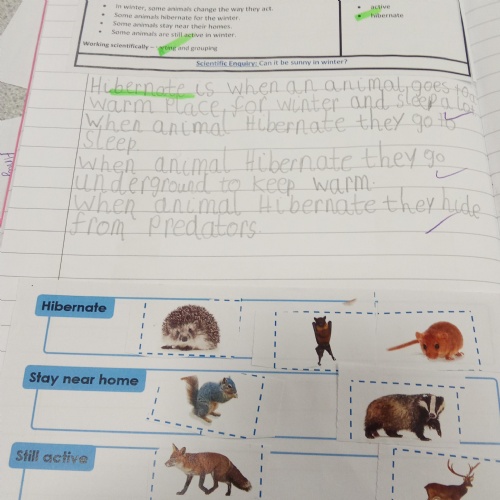 In winter, some animals change the way they act.
Some animals hibernate for the winter.
Some animals stay near their homes.
Some animals are still active in winter.
Working scientifically – and grouping
active
hibernate
Scientific Enquiry: Can it be sunny in winter?
Hibernate is when an animal goes to
warm Place for winter and sleep a lot
when animal Hibernate they go to
Sleep.
when animal Hibernate they go
underground to keep warm.
when animal Hibernate they hide
from Predators.
Hibernate
Stay near home
Still active